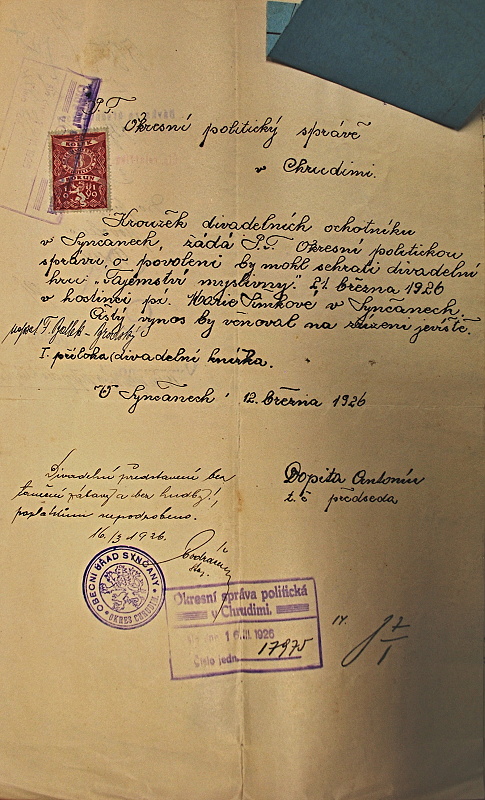 P.T.
Okresní politický správě
v Chrudimi.
KOLEK
Kroužek divadelních ochotníků
v Synčanech, žádá P.T. Okresní politickou
správu, o povolení by mohl sehrati divadelní
hru „Tajemství myslivny." 21. března 1926
v hostinci pí. Marie Šimkové v Synčanech,
Čistý výnos by věnoval na zřízení jeviště.
napsal F.
I. příloha (divadelní knížka.
V Synčanech 12. března 1926
Divadelní představení bez
taneční zábavy a bez hudby,
poplatkům nepodrobeno.
16./3 1926.
Dopita Antonín
t. č. předseda
OBECNÍ ÚŘAD SYNČANY
OKRES CHRUDIM
Okresní správa politická
v Chrudimi.
16.III.1926
Číslo jedn. 17975